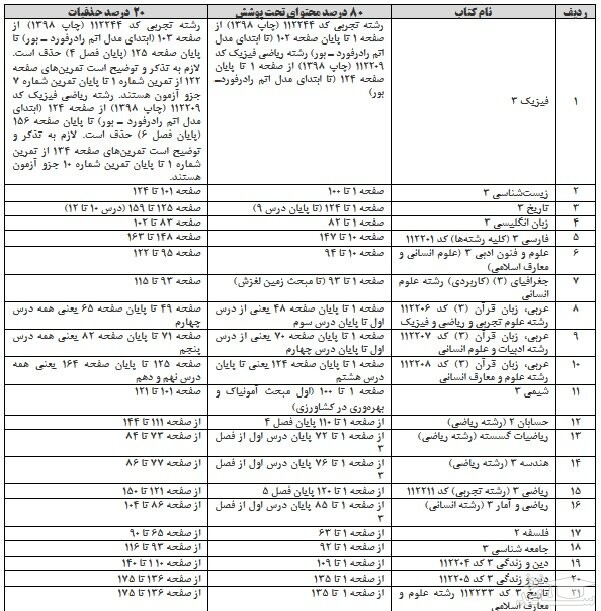 ردیف	نام کتاب	۸۰ درصد محتوای تحت پوشش	۲۰ درصد حذفیات
۱	فیزیک ۳
رشته تجربی کد ۱۱۲۲۴۴ (چاپ ۱۳۹۸) از
صفحه ۱ تا پایان صفحه ۱۰۲ (تا ابتدای مدل
اتم رادرفورد ـ بور) رشته ریاضی فیزیک کد
۱۱۲۲۰۹ (چاپ ۱۳۹۸) از صفحه ۱ تا پایان
صفحه ۱۲۴ (تا ابتدای مدل اتم رادرفورد ـ
بور)
رشته تجربی کد ۱۱۲۲۴۴ (چاپ ۱۳۹۸) از
صفحه ۱۰۳ (ابتدای مدل اتم رادرفورد - بور) تا
پایان صفحه ۱۲۵ (پایان فصل ۴) حذف است.
لازم به تذکر و توضیح است تمرین‌های صفحه
۱۲۲ از تمرین شماره ۱ تا پایان تمرین شماره ۷
جزو آزمون هستند. رشته ریاضی فیزیک کد
۱۱۲۲۰۹ (چاپ ۱۳۹۸) از صفحه ۱۲۴ (ابتدای
مدل اتم رادرفورد - بور) تا پایان صفحه ۱۵۶
(پایان فصل ۶) حذف است. لازم به تذکر و
توضیح است تمرین‌های صفحه ۱۳۴ از تمرین
شماره ۱ تا پایان تمرین شماره ۱۰ جزو آزمون
هستند.
۲	زیست‌شناسی ۳	صفحه ۱ تا ۱۰۰	صفحه ۱۰۱ تا ۱۲۴
۳	تاریخ ۳	صفحه ۱ تا ۱۲۴ (تا پایان درس ۹)	صفحه ۱۲۵ تا ۱۵۹ (درس ۱۰ تا ۱۲)
۴	زبان انگلیسی ۳	صفحه ۱ تا ۸۲	صفحه ۸۳ تا ۱۰۲
۵	فارسی ۳ (کلیه رشته‌ها) کد ۱۱۲۲۰۱	صفحه ۱۰ تا ۱۴۷	صفحه ۱۴۸ تا ۱۶۳
۶	علوم و فنون ادبی ۳ (علوم انسانی و	صفحه ۱۰ تا ۹۴	صفحه ۹۵ تا ۱۲۲
معارف اسلامی)
۷	جغرافیای (۳) (کاربردی) رشته علوم	صفحه ۱ تا ۹۳ (تا مبحث زمین لغزش)	صفحه ۹۳ تا ۱۱۵
انسانی
۸	عربی، زبان قرآن (۳) کد ۱۱۲۲۰۶	صفحه ۱ تا پایان صفحه ۴۸ یعنی از درس	صفحه ۴۹ تا پایان صفحه ۶۵ یعنی همه درس
رشته علوم تجربی و ریاضی و فیزیک	اول تا پایان درس سوم	چهارم
۹	عربی، زبان قرآن (۳) کد ۱۱۲۲۰۷	صفحه ۱ تا پایان صفحه ۷۰ یعنی از درس	صفحه ۷۱ تا پایان صفحه ۸۲ یعنی همه درس
رشته ادبیات و علوم انسانی	اول تا پایان درس چهارم	پنجم
۱۰	عربی، زبان قرآن (۳) کد ۱۱۲۲۰۸	صفحه ۱ تا پایان صفحه ۱۲۴ یعنی تا پایان	صفحه ۱۲۵ تا پایان صفحه ۱۶۴ یعنی همه
رشته علوم و معارف انسانی	درس هشتم	درس نهم و دهم
۱۱	شیمی ۳	صفحه ۱ تا ۱۰۰ (اول مبحث آمونیاک و	صفحه ۱۰۱ تا ۱۲۱
بهره‌وری در کشاورزی)
۱۲	حسابان ۲ (رشته ریاضی)	از صفحه ۱ تا ۱۱۰ پایان فصل ۴	از صفحه ۱۱۱ تا ۱۴۴
۱۳	ریاضیات گسسته (رشته ریاضی)	از صفحه ۱ تا ۷۲ پایان درس اول از فصل	از صفحه ۷۳ تا ۸۴
۳
۱۴	هندسه ۳ (رشته ریاضی)	از صفحه ۱ تا ۷۶ پایان درس اول از فصل	از صفحه ۷۷ تا ۸۶
۳
۱۵	ریاضی ۳ (رشته تجربی) کد ۱۱۲۲۱۱	از صفحه ۱ تا ۱۲۰ پایان فصل ۵	از صفحه ۱۲۱ تا ۱۵۰
۱۶	ریاضی و آمار ۳ (رشته انسانی)	از صفحه ۱ تا ۸۵ پایان درس اول از فصل	از صفحه ۸۶ تا ۱۰۴
۳
۱۷	فلسفه ۲	از صفحه ۱ تا ۶۳	از صفحه ۶۵ تا ۹۰
۱۸	جامعه شناسی ۳	از صفحه ۱ تا ۹۲	از صفحه ۹۳ تا ۱۱۶
۱۹	دین و زندگی ۳ کد ۱۱۲۲۰۴	از صفحه ۱ تا ۱۰۹	از صفحه ۱۱۰ تا ۱۴۰
۲۰	دین و زندگی ۳ کد ۱۱۲۲۰۵	از صفحه ۱ تا ۱۳۵	از صفحه ۱۳۶ تا ۱۷۵
۲۱	تاریخ ۳ کد ۱۱۲۲۳۳ رشته علوم و	از صفحه ۱ تا ۱۳۵	از صفحه ۱۳۶ تا ۱۷۵
معارف اسلامی